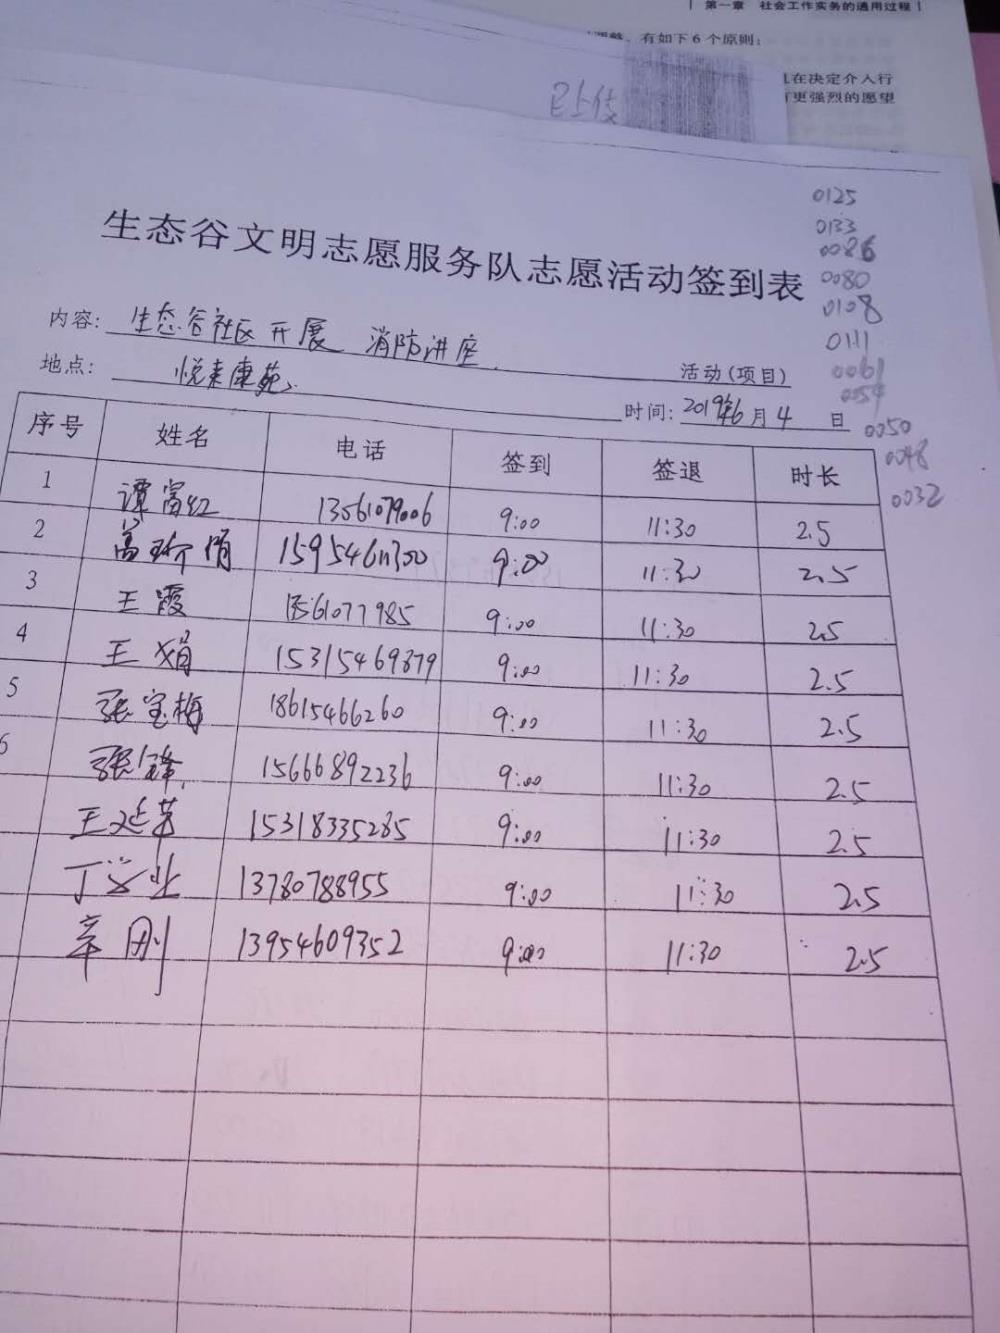 第一章 社会工作实务的通用过程
有如下6个原则：
在决定介入行
更强烈的愿望
已上传
0125
0133
0086
0080
0108
0111
0061
0054
0050
0048
0032
生态谷文明志愿服务队志愿活动签到表
内容： 生态谷社区开展 消防讲座 活动(项目)
地点： 悦来康苑 时间： 2019年6月4日
序号 姓名 电话 签到 签退 时长
1 谭富红 13561079006 9:00 11:30 2.5
2 高 9:00 11:30 2.5
3 王霞 13561077985 9:00 11:30 2.5
4 王娟 15315469879 9:00 11:30 2.5
5 张宝梅 18615466260 9:00 11:30 2.5
6 张锋 15666892236 9:00 11:30 2.5
王延芳 15318335285 9:00 11:30 2.5
丁学业 13780788955 9:00 11:30 2.5
辛刚 13954609352 9:00 11:30 2.5